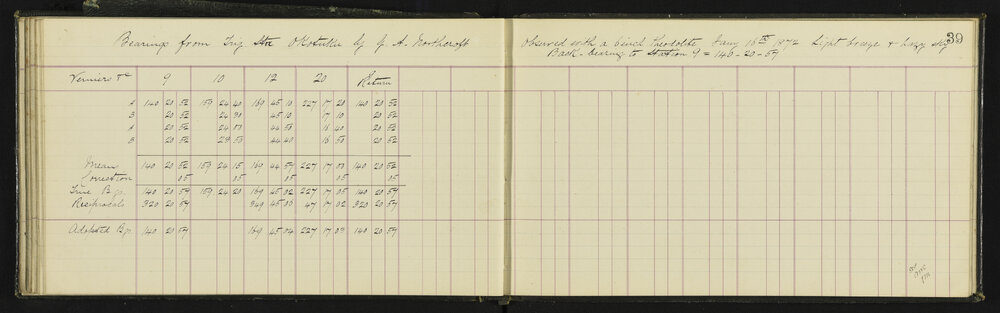 39
Bearings from Trig Stn Okotuku by G. A. Northcroft Observed with a 6 inch Theodolite Jany 15th 1874 Light breeze & hazy sky
Back-bearing to Station 9 = 140-20-57
Verniers &c 9 10 12 20 Return
A 140 20 52 159 24 40 169 45 10 227 17 20 140 20 52
B 20 52 24 30 45 10 17 10 20 52
A 20 52 24 00 44 50 16 40 20 52
B 20 52 23 50 44 40 16 50 20 52
Mean 140 20 52 159 24 15 169 44 57 227 17 00 140 20 52
Correction 05 05 05 05 05
True Bg 140 20 57 159 24 20 169 45 02 227 17 05 140 20 57
Reciprocals 320 20 57 349 45 00 47 17 02 320 20 57
Adopted Bg 140 20 57 169 45 04 227 17 03 140 20 57